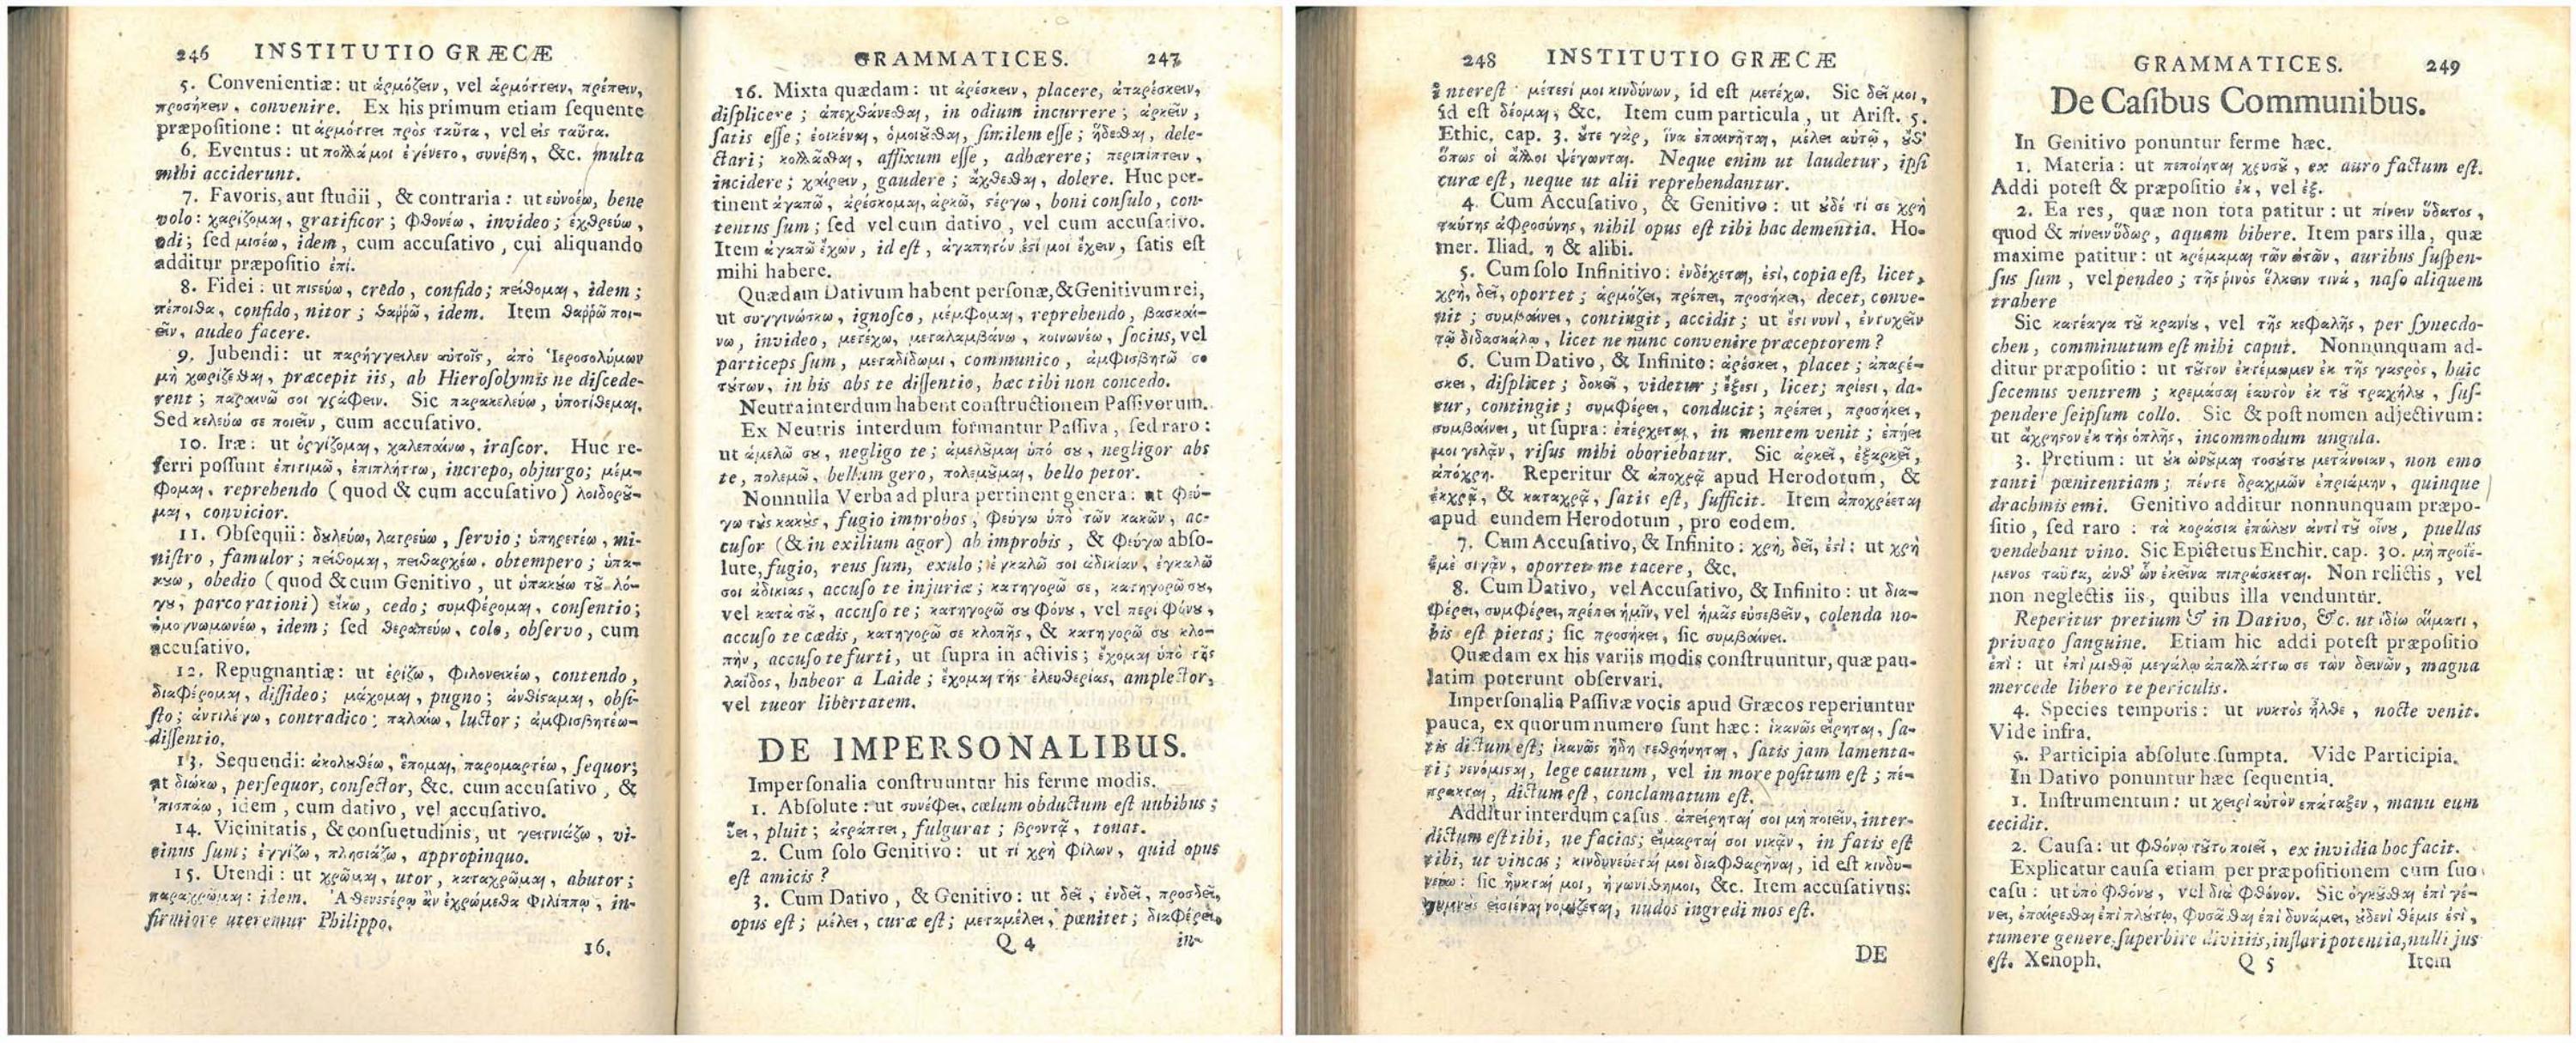 246 INSTITUTIO GRÆCÆ
5. Convenientiæ: ut ἁρμόζειν, vel ἁρμόττειν, πρέπειν,
προσήκειν, convenire. Ex his primum etiam ſequente
præpoſitione: ut ἁρμόττει πρὸς ταῦτα, vel εἰς ταῦτα.
6. Eventus: ut πολλά μοι ἐγένετο, συνέβη, &c. multa
mihi acciderunt.
7. Favoris, aut ſtudii, & contraria: ut εὐνοέω, bene
volo: χαρίζομαι, gratificor; φθονέω, invideo; ἐχθρεύω,
odi; ſed μισέω, idem, cum accuſativo, cui aliquando
additur præpoſitio ἐπί.
8. Fidei: ut πιστεύω, credo, confido; πείθομαι, idem;
πέποιθα, confido, nitor; θαῤῥῶ, idem. Item θαῤῥῶ ποι-
εῖν, audeo facere.
9. Jubendi: ut παρήγγειλεν αὐτοῖς, ἀπὸ Ἱεροσολύμων
μὴ χωρίζεσθαι, præcepit iis, ab Hieroſolymis ne diſcede-
rent; παραινῶ σοι γράφειν. Sic παρακελεύω, ὑποτίθεμαι.
Sed κελεύω σε ποιεῖν, cum accuſativo.
10. Iræ: ut ὀργίζομαι, χαλεπαίνω, iraſcor. Huc re-
ferri poſſunt ἐπιτιμῶ, ἐπιπλήττω, increpo, objurgo; μέμ-
φομαι, reprehendo (quod & cum accuſativo) λοιδοροῦ-
μαι, convicior.
11. Obſequii: δουλεύω, λατρεύω, ſervio; ὑπηρετέω, mi-
niſtro, famulor; πείθομαι, πειθαρχέω, obtempero; ὑπα-
κούω, obedio (quod & cum Genitivo, ut ὑπακούω τοῦ λό-
γου, parco rationi) εἴκω, cedo; συμφέρομαι, conſentio;
ὁμογνωμονέω, idem; ſed θεραπεύω, colo, obſervo, cum
accuſativo.
12. Repugnantiæ: ut ἐρίζω, φιλονεικέω, contendo,
διαφέρομαι, diſſideo; μάχομαι, pugno; ἀνθίσταμαι, obſi-
ſto; ἀντιλέγω, contradico; παλαίω, luctor; ἀμφισβητέω-
diſſentio.
13. Sequendi: ἀκολουθέω, ἕπομαι, παρομαρτέω, ſequor;
at διώκω, perſequor, conſector, &c. cum accuſativo, &
ἐπισπάω, idem, cum dativo, vel accuſativo.
14. Vicinitatis, & conſuetudinis, ut γειτνιάζω, vi-
cinus ſum; ἐγγίζω, πλησιάζω, appropinquo.
15. Utendi: ut χρῶμαι, utor, καταχρῶμαι, abutor;
παραχρῶμαι: idem. Ἀσθενεστέρῳ ἂν ἐχρώμεθα Φιλίππῳ, in-
firmiore uteremur Philippo.
16.
GRAMMATICES. 247
16. Mixta quædam: ut ἀρέσκειν, placere, ἀπαρέσκειν,
diſplicere; ἀπεχθάνεσθαι, in odium incurrere; ἀρκεῖν,
ſatis eſſe; ἐοικέναι, ὁμοιοῦσθαι, ſimilem eſſe; ἥδεσθαι, dele-
ctari; κολλᾶσθαι, affixum eſſe, adhærere; περιπίπτειν,
incidere; χαίρειν, gaudere; ἄχθεσθαι, dolere. Huc per-
tinent ἀγαπῶ, ἀρέσκομαι, ἀρκῶ, στέργω, boni conſulo, con-
tentus ſum; ſed vel cum dativo, vel cum accuſativo.
Item ἀγαπῶ ἔχων, id eſt, ἀγαπητόν ἐστί μοι ἔχειν, ſatis eſt
mihi habere.
Quædam Dativum habent perſonæ, & Genitivum rei,
ut συγγινώσκω, ignoſco, μέμφομαι, reprehendo, βασκαί-
νω, invideo, μετέχω, μεταλαμβάνω, κοινωνέω, ſocius, vel
particeps ſum, μεταδίδωμι, communico, ἀμφισβητῶ σοι
τούτων, in his abs te diſſentio, hæc tibi non concedo.
Neutra interdum habent conſtructionem Paſſivorum.
Ex Neutris interdum formantur Paſſiva, ſed raro:
ut ἀμελῶ σου, negligo te; ἀμελοῦμαι ὑπό σου, negligor abs
te, πολεμῶ, bellum gero, πολεμοῦμαι, bello petor.
Nonnulla Verba ad plura pertinent genera: ut φεύ-
γω τοὺς κακοὺς, fugio improbos, φεύγω ὑπὸ τῶν κακῶν, ac-
cuſor (& in exilium agor) ab improbis, & φεύγω abſo-
lute, fugio, reus ſum, exulo; ἐγκαλῶ σοι ἀδικίαν, ἐγκαλῶ
σοι ἀδικίας, accuſo te injuriæ; κατηγορῶ σε, κατηγορῶ σου,
vel κατὰ σοῦ, accuſo te; κατηγορῶ σου φόνου, vel περὶ φόνου,
accuſo te cædis, κατηγορῶ σε κλοπῆς, & κατηγορῶ σου κλο-
πὴν, accuſo te furti, ut ſupra in activis; ἔχομαι ὑπὸ τῆς
λαΐδος, habeor a Laide; ἔχομαι τῆς ἐλευθερίας, amplector,
vel tueor libertatem.
DE IMPERSONALIBUS.
Imperſonalia conſtruuntur his ferme modis.
1. Abſolute: ut συνέφει, cœlum obductum eſt nubibus;
ὕει, pluit; ἀστράπτει, fulgurat; βροντᾷ, tonat.
2. Cum ſolo Genitivo: ut τί χρὴ φίλων, quid opus
eſt amicis?
3. Cum Dativo, & Genitivo: ut δεῖ, ἐνδεῖ, προσδεῖ,
opus eſt; μέλει, curæ eſt; μεταμέλει, pœnitet; διαφέρει,
Q 4 in-
248 INSTITUTIO GRÆCÆ
intereſt μέτεστί μοι κινδύνων, id eſt μετέχω. Sic δεῖ μοι,
id eſt δέομαι, &c. Item cum particula, ut Ariſt. 5.
Ethic. cap. 3. οὔτε γὰρ, ἵνα ἐπαινῆται, μέλει αὐτῷ, οὐδ'
ὅπως οἱ ἄλλοι ψέγωνται. Neque enim ut laudetur, ipſi
curæ eſt, neque ut alii reprehendantur.
4. Cum Accuſativo, & Genitivo: ut οὐδέ τί σε χρὴ
ταύτης ἀφροσύνης, nihil opus eſt tibi hac dementia. Ho-
mer. Iliad. η & alibi.
5. Cum ſolo Infinitivo: ἐνδέχεται, ἐστὶ, copia eſt, licet,
χρὴ, δεῖ, oportet; ἁρμόζει, πρέπει, προσήκει, decet, conve-
nit; συμβαίνει, contingit, accidit; ut ἔστι νυνὶ, ἐντυχεῖν
τῷ διδασκάλῳ, licet ne nunc convenire præceptorem?
6. Cum Dativo, & Infinito: ἀρέσκει, placet; ἀπαρέ-
σκει, diſplicet; δοκεῖ, videtur; ἔξεστι, licet; πρίεστι, da-
tur, contingit; συμφέρει, conducit; πρέπει, προσήκει,
συμβαίνει, ut ſupra: ἐπέρχεται, in mentem venit; ἐπῄει
μοι γελᾷν, riſus mihi oboriebatur. Sic ἀρκεῖ, ἐξαρκεῖ,
ἀπόχρη. Reperitur & ἀποχρᾷ apud Herodotum, &
ἐκχρᾷ, & καταχρᾷ, ſatis eſt, ſufficit. Item ἀποχρέεται
apud eundem Herodotum, pro eodem.
7. Cum Accuſativo, & Infinito: χρὴ, δεῖ, ἐστί: ut χρὴ
ἐμὲ σιγᾷν, oportet me tacere, &c.
8. Cum Dativo, vel Accuſativo, & Infinito: ut δια-
φέρει, συμφέρει, πρέπει ἡμῖν, vel ἡμᾶς εὐσεβεῖν, colenda no-
bis eſt pietas; ſic προσήκει, ſic συμβαίνει.
Quædam ex his variis modis conſtruuntur, quæ pau-
latim poterunt obſervari.
Imperſonalia Paſſivæ vocis apud Græcos reperiuntur
pauca, ex quorum numero ſunt hæc: ἱκανῶς εἴρηται, ſa-
tis dictum eſt; ἱκανῶς ἤδη τεθρήνηται, ſatis jam lamenta-
ti; νενόμισται, lege cautum, vel in more poſitum eſt; πέ-
πρακται, dictum eſt, conclamatum eſt.
Additur interdum caſus ἀπείρηταί σοι μὴ ποιεῖν, inter-
dictum eſt tibi, ne facias; εἵμαρταί σοι νικᾷν, in fatis eſt
tibi, ut vincas; κινδυνεύεταί μοι διαφθαρῆναι, id eſt κινδυ-
νεύω: ſic ηὖκταί μοι, ἠγωνίσθη μοι, &c. Item accuſativus:
γυμνοὺς εἰσιέναι νομίζεται, nudos ingredi mos eſt.
DE
GRAMMATICES. 249
De Caſibus Communibus.
In Genitivo ponuntur ferme hæc.
1. Materia: ut πεποίηται χρυσοῦ, ex auro factum eſt.
Addi poteſt & præpoſitio ἐκ, vel ἐξ.
2. Ea res, quæ non tota patitur: ut πίνειν ὕδατος,
quod & πίνειν ὕδωρ, aquam bibere. Item pars illa, quæ
maxime patitur: ut κρέμαμαι τῶν ὠτῶν, auribus ſuſpen-
ſus ſum, vel pendeo; τῆς ῥινὸς ἕλκειν τινά, naſo aliquem
trahere
Sic κατέαγα τοῦ κρανίου, vel τῆς κεφαλῆς, per ſynecdo-
chen, comminutum eſt mihi caput. Nonnunquam ad-
ditur præpoſitio: ut τοῦτον ἐκτέμωμεν ἐκ τῆς γαστρὸς, huic
ſecemus ventrem; κρεμάσαι ἑαυτὸν ἐκ τοῦ τραχήλου, ſuſ-
pendere ſeipſum collo. Sic & poſt nomen adjectivum:
ut ἄχρηστον ἐκ τῆς ὁπλῆς, incommodum ungula.
3. Pretium: ut οὐκ ὠνοῦμαι τοσούτου μετάνοιαν, non emo
tanti pœnitentiam; πέντε δραχμῶν ἐπριάμην, quinque
drachmis emi. Genitivo additur nonnunquam præpo-
ſitio, ſed raro: τὰ κοράσια ἐπώλουν ἀντὶ τοῦ οἴνου, puellas
vendebant vino. Sic Epictetus Enchir. cap. 30. μὴ προϊέ-
μενος ταῦτα, ἀνθ' ὧν ἐκεῖνα πιπράσκεται. Non relictis, vel
non neglectis iis, quibus illa venduntur.
Reperitur pretium & in Dativo, &c. ut ἰδίῳ αἵματι,
privato ſanguine. Etiam hic addi poteſt præpoſitio
ἐπὶ: ut ἐπὶ μισθῷ μεγάλῳ ἀπαλλάττω σε τῶν δεινῶν, magna
mercede libero te periculis.
4. Species temporis: ut νυκτὸς ἦλθε, nocte venit.
Vide infra.
5. Participia abſolute ſumpta. Vide Participia.
In Dativo ponuntur hæc ſequentia.
1. Inſtrumentum: ut χειρὶ αὐτὸν ἐπάταξεν, manu eum
cecidit.
2. Cauſa: ut φθόνῳ τοῦτο ποιεῖ, ex invidia hoc facit.
Explicatur cauſa etiam per præpoſitionem cum ſuo
caſu: ut ὑπὸ φθόνου, vel διὰ φθόνον. Sic ὀγκοῦσθαι ἐπὶ γέ-
νει, ἐπαίρεσθαι ἐπὶ πλούτῳ, φυσᾶσθαι ἐπὶ δυνάμει, οὐδενὶ θέμις ἐστὶ,
tumere genere, ſuperbire divitiis, inflari potentia, nulli jus
eſt. Xenoph. Q 5 Item